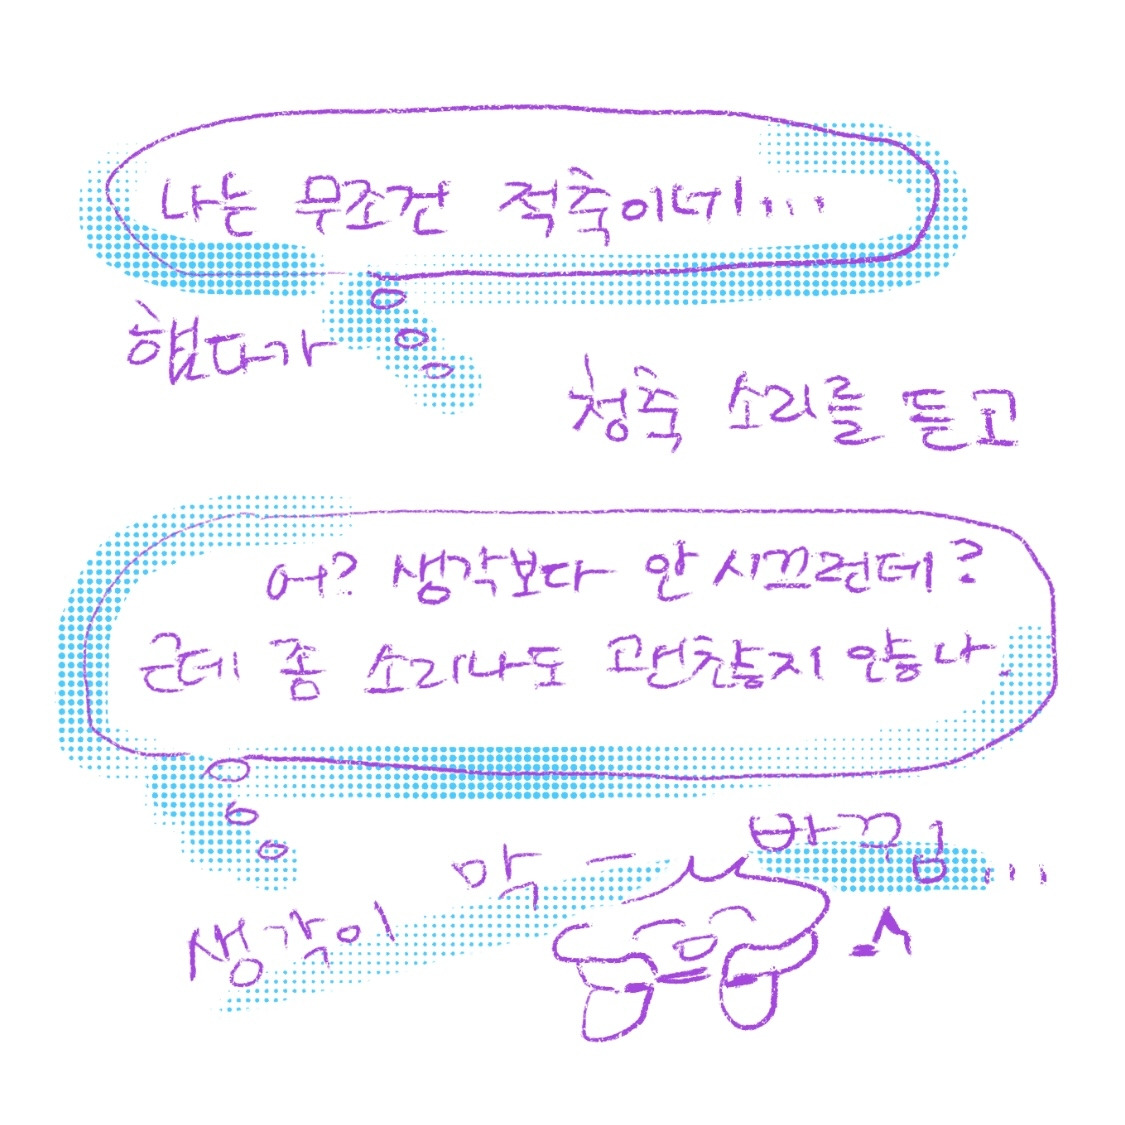 나는 무조건 적축이네...
햇다가
청축 소리를 듣고
어? 생각보다 안 시끄런데?
근데 좀 소리나도 괜찮지 않나.
생각이 막 바뀜...